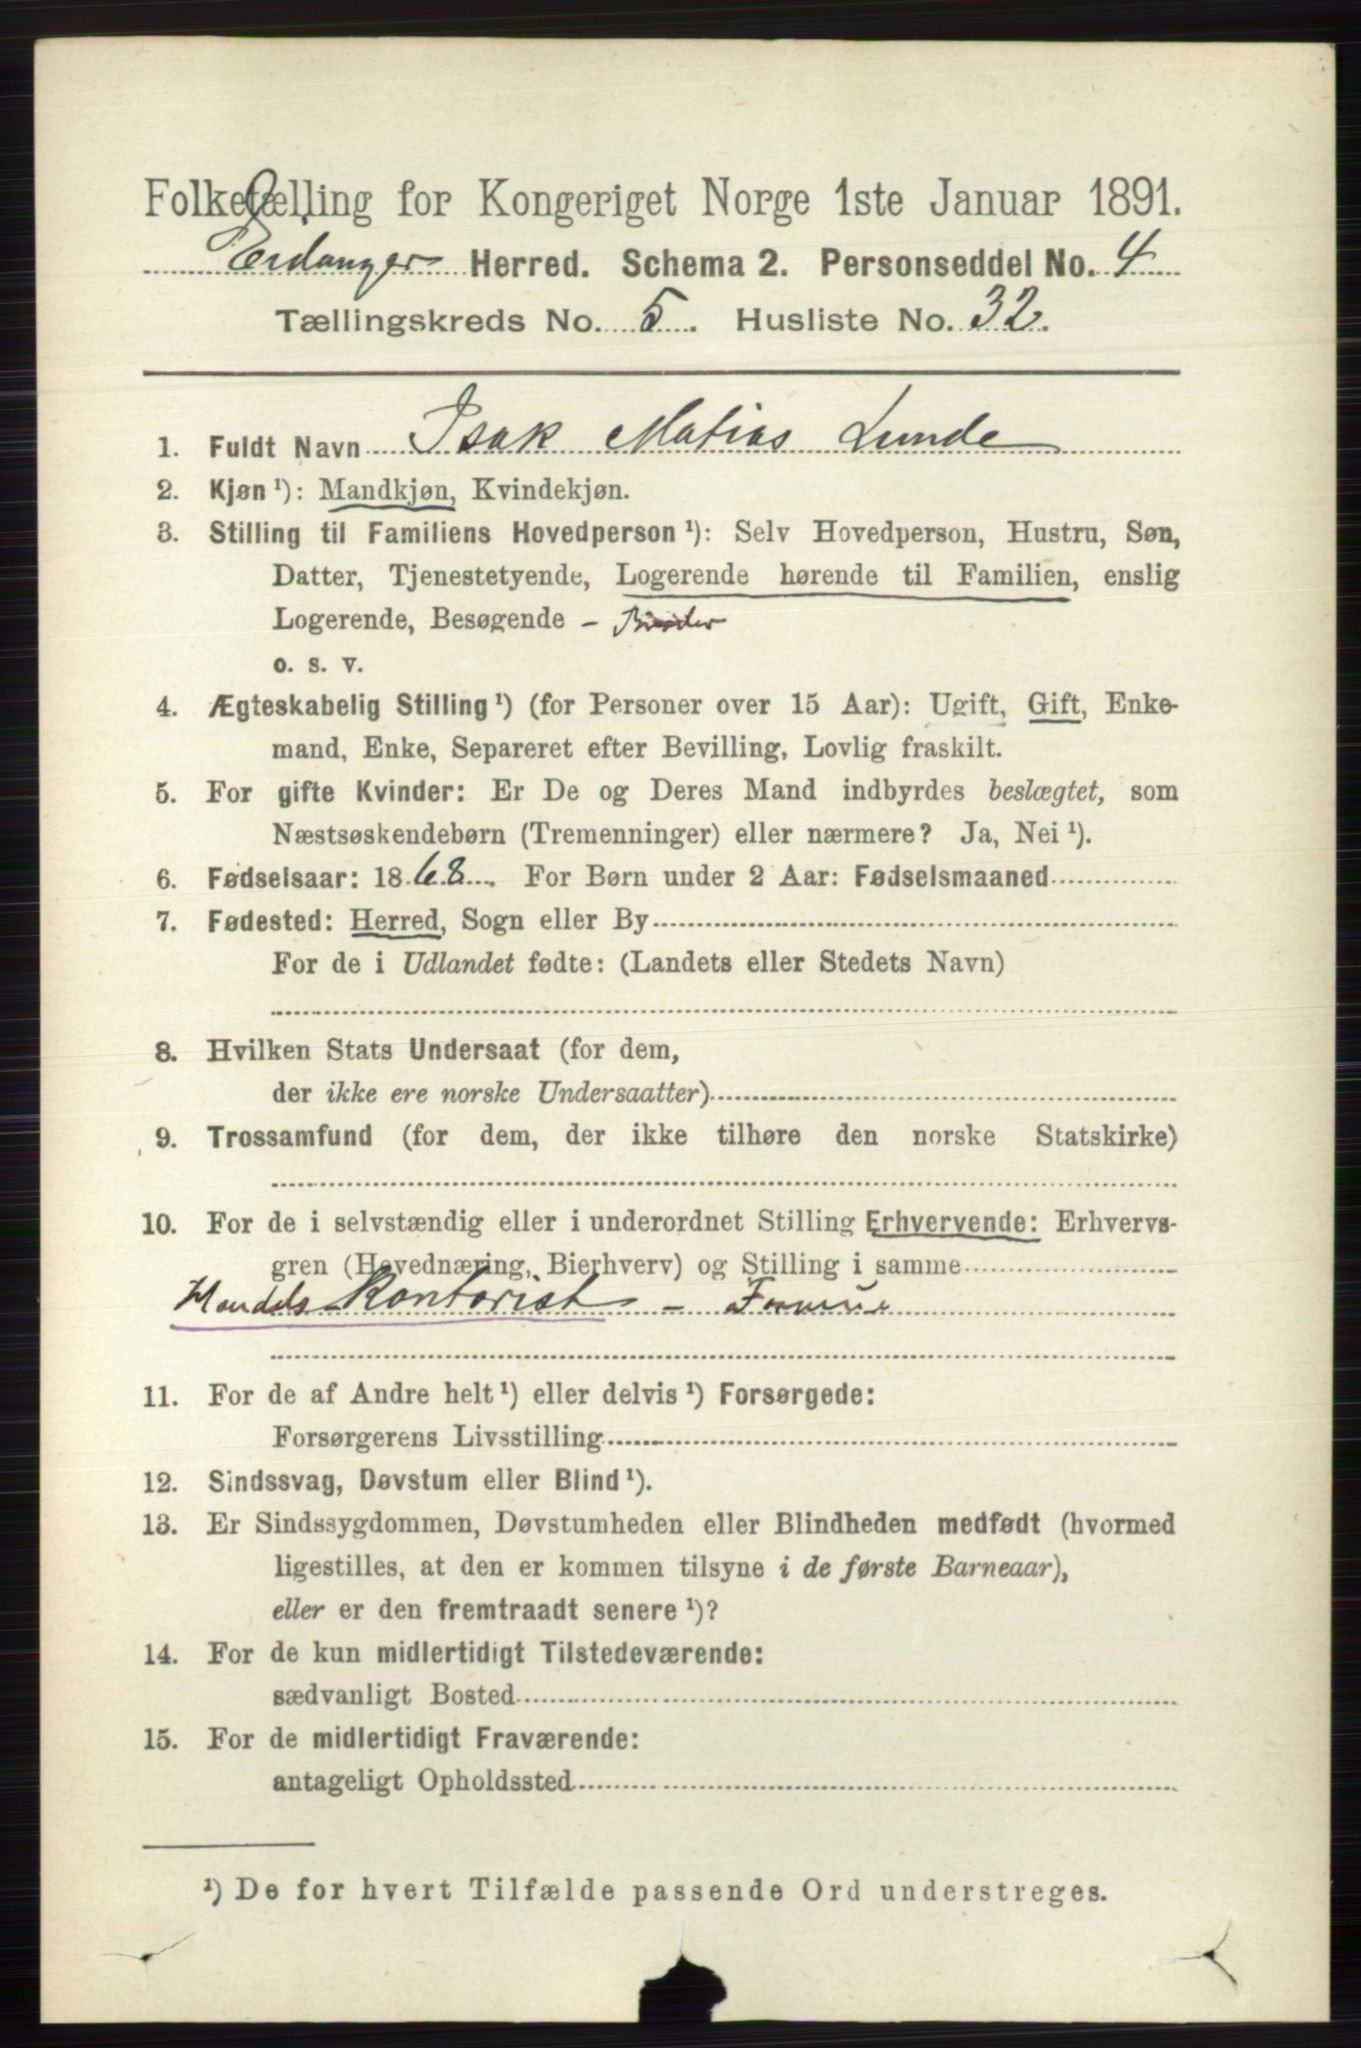 Folketælling for Kongeriget Norge 1ste Januar 1891.
Eidanger Herred. Schema 2. Personseddel No. 4
Tællingskreds No. 5. Husliste No. 32.
1. Fuldt Navn Isak Matias Lunde
2. Kjøn ¹): Mandkjøn, Kvindekjøn.
3. Stilling til Familiens Hovedperson ¹): Selv Hovedperson, Hustru, Søn,
Datter, Tjenestetyende, Logerende hørende til Familien, enslig
Logerende, Besøgende –
o. s. v.
4. Ægteskabelig Stilling ¹) (for Personer over 15 Aar): Ugift, Gift, Enke-
mand, Enke, Separeret efter Bevilling, Lovlig fraskilt.
5. For gifte Kvinder: Er De og Deres Mand indbyrdes beslægtet, som
Næstsøskendebørn (Tremenninger) eller nærmere? Ja, Nei ¹).
6. Fødselsaar: 1868. For Børn under 2 Aar: Fødselsmaaned
7. Fødested: Herred, Sogn eller By
For de i Udlandet fødte: (Landets eller Stedets Navn)
8. Hvilken Stats Undersaat (for dem,
der ikke ere norske Undersaatter)
9. Trossamfund (for dem, der ikke tilhøre den norske Statskirke)
10. For de i selvstændig eller i underordnet Stilling Erhvervende: Erhvervs-
gren (Hovednæring, Bierhverv) og Stilling i samme
Handels Kontorist – Formue
11. For de af Andre helt ¹) eller delvis ¹) Forsørgede:
Forsørgerens Livsstilling
12. Sindssvag, Døvstum eller Blind ¹).
13. Er Sindssygdommen, Døvstumheden eller Blindheden medfødt (hvormed
ligestilles, at den er kommen tilsyne i de første Barneaar),
eller er den fremtraadt senere ¹)?
14. For de kun midlertidigt Tilstedeværende:
sædvanligt Bosted
15. For de midlertidigt Fraværende:
antageligt Opholdssted
¹) De for hvert Tilfælde passende Ord understreges.